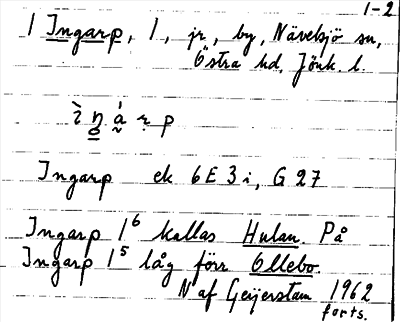 1-2
1 Ingarp, 1, jr, by, Nävelsjö sn,
Östra hd, Jönk. l.
ì ŋ á r p
Ingarp ek 6E3i, G27
Ingarp 1⁶ kallas Hulan. På
Ingarp 1⁵ låg förr Ollebo.
N af Geijerstam 1962
forts.